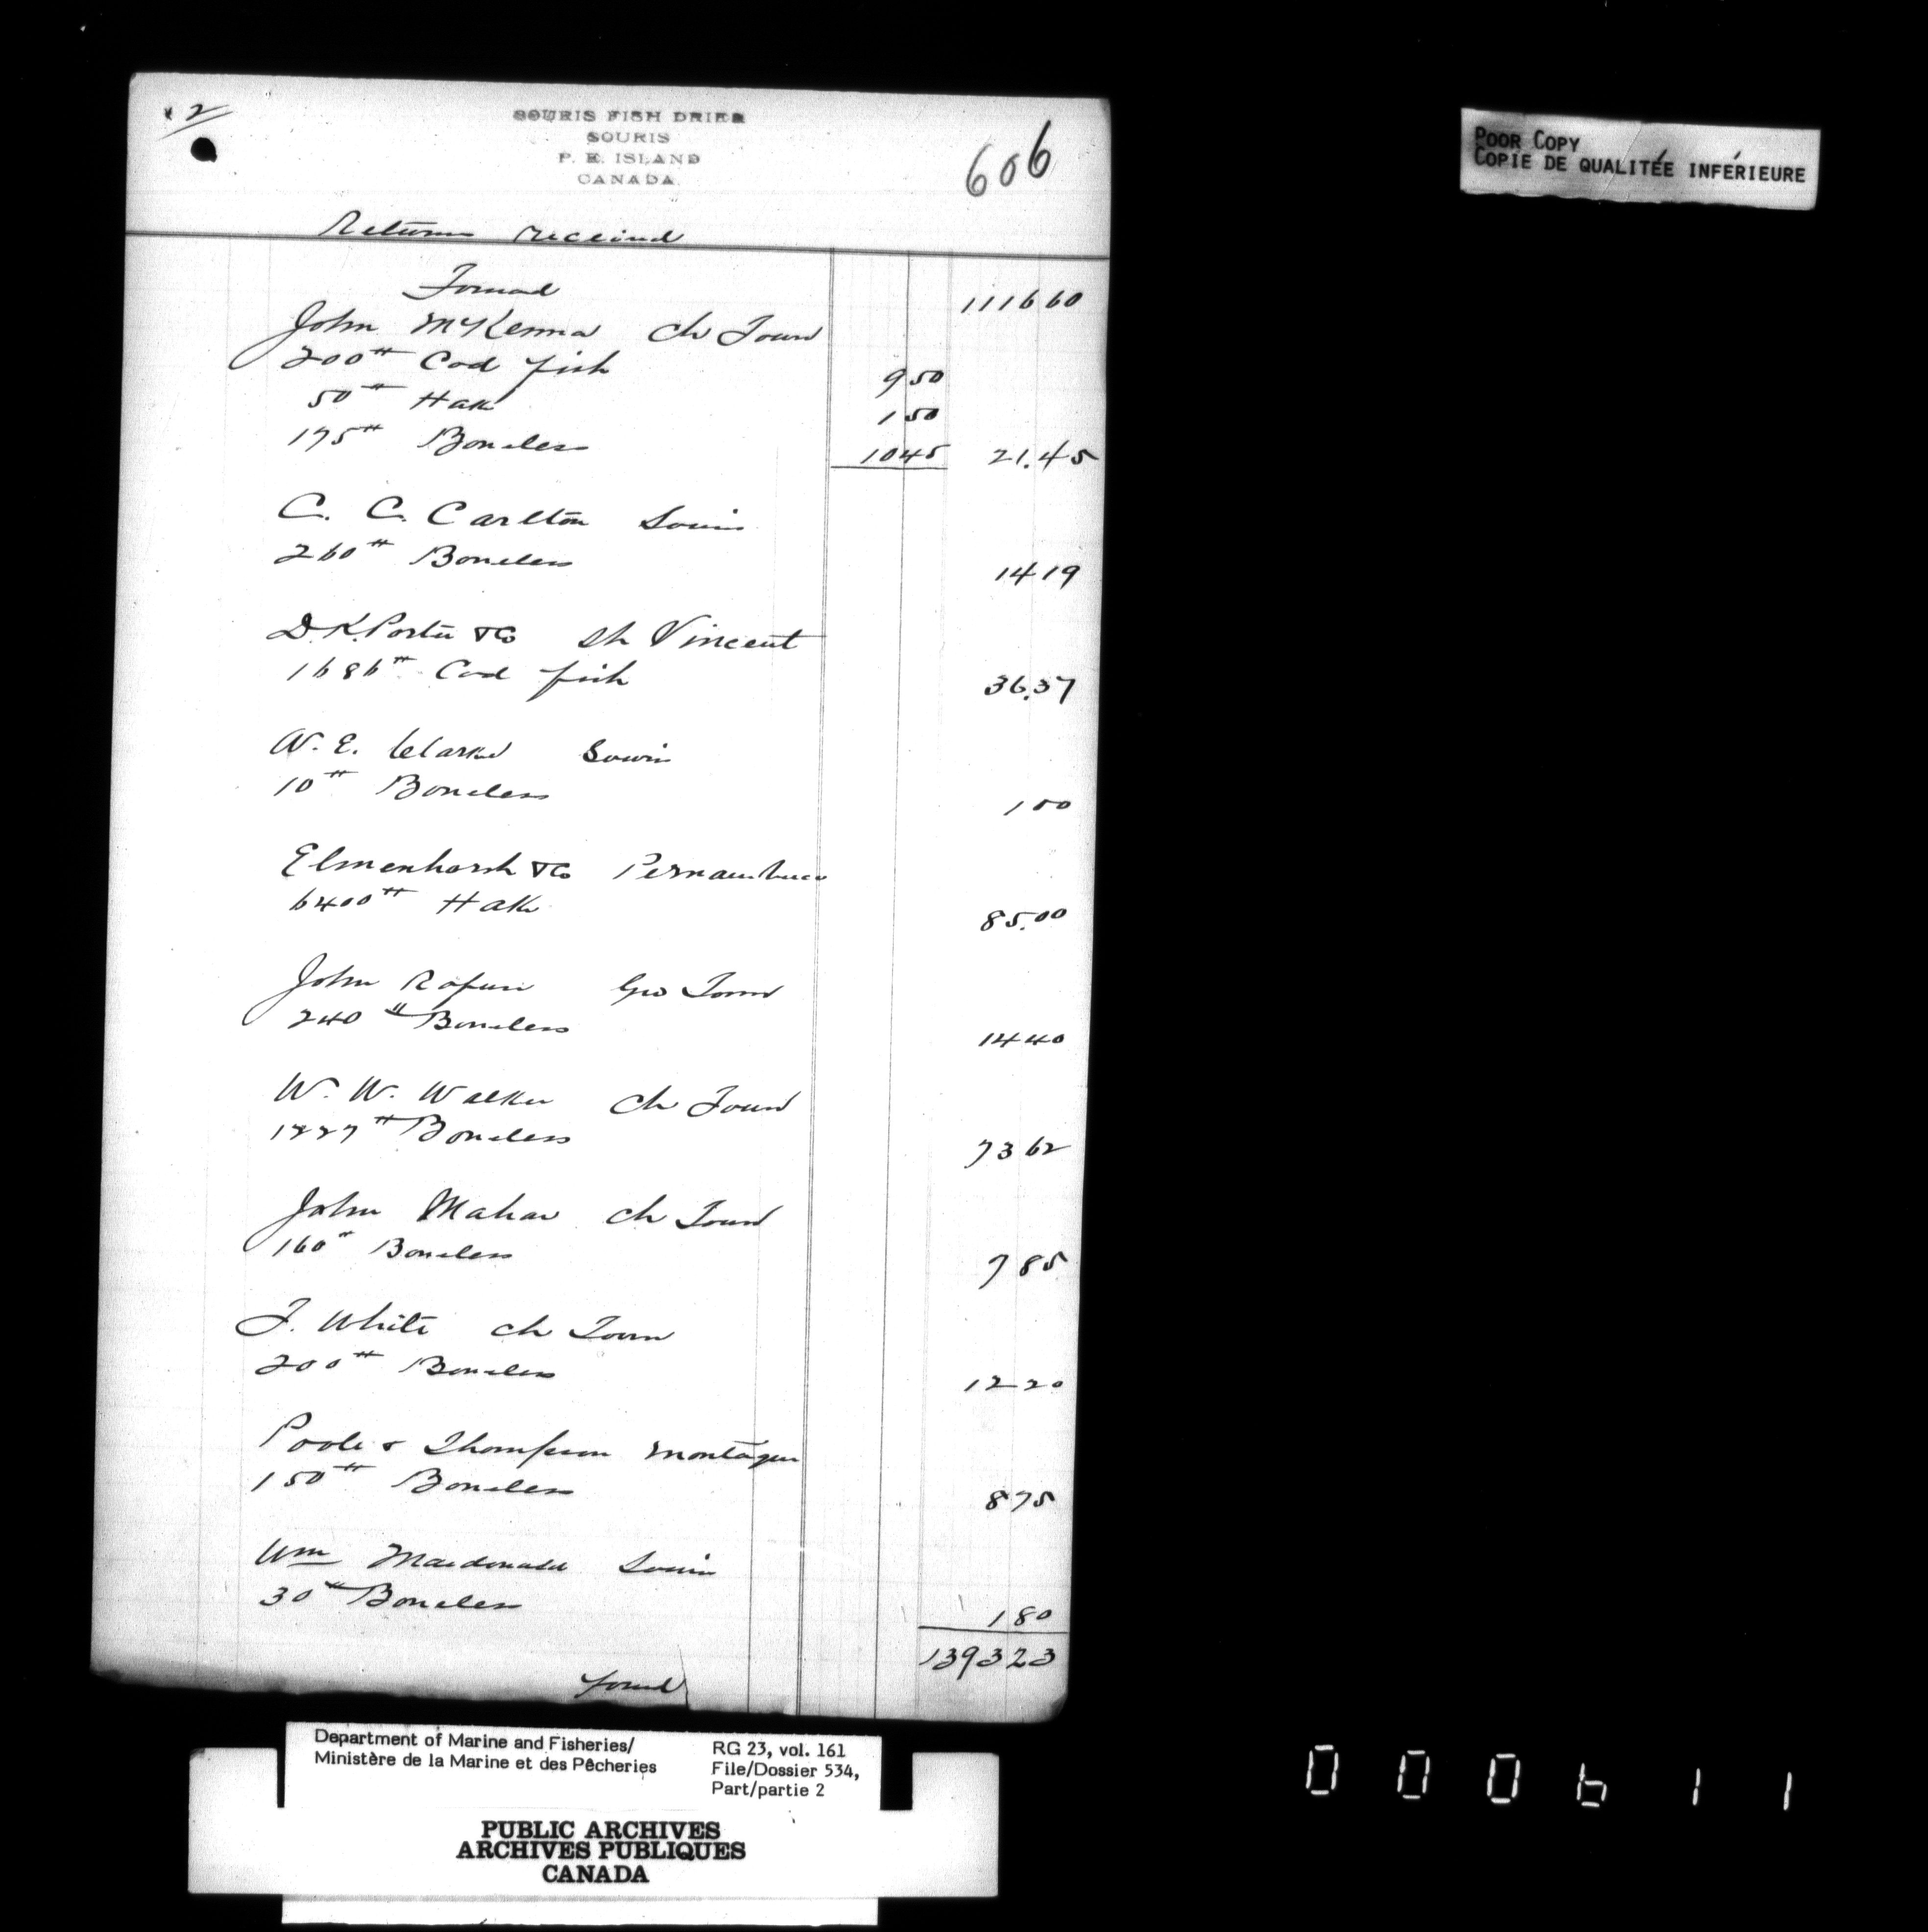 x 2
SOURIS FISH DRIER
SOURIS
P. E. ISLAND
CANADA
606
Returns received
Forward 1116 60
John McKenna Ch Town
200# Cod fish 9 50
50# Hake 1 50
175# Boneless 10 45 21.45
C. C. Carlton Souris
260# Boneless 14 19
D. K. Porter & Co St Vincent
1686# Cod fish 36.37
W. E. Clarke Souris
10# Boneless 1 00
Elmenhorst & Co Pernambuco
6400# Hake 85.00
John Geo Town
240# Boneless 14 40
W. W. Walker Ch Town
1227# Boneless 73 62
John Mahar Ch Town
160# Boneless 7 85
J. White Ch Town
200# Boneless 12 20
Poole & Thompson Montague
150# Boneless 8 75
Wm Macdonald Souris
30# Boneless 1 80
1393 23
forwd
POOR COPY
COPIE DE QUALITÉE INFÉRIEURE
Department of Marine and Fisheries/
Ministère de la Marine et des Pêcheries
RG 23, vol. 161
File/Dossier 534,
Part/partie 2
PUBLIC ARCHIVES
ARCHIVES PUBLIQUES
CANADA
000611